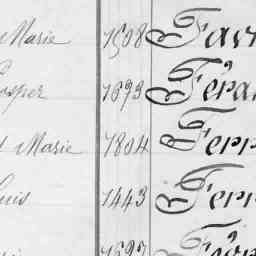 Marie 1508 Fav
osper 1693 Féra
Marie 1804 Ferr
uis 1443 Ferr